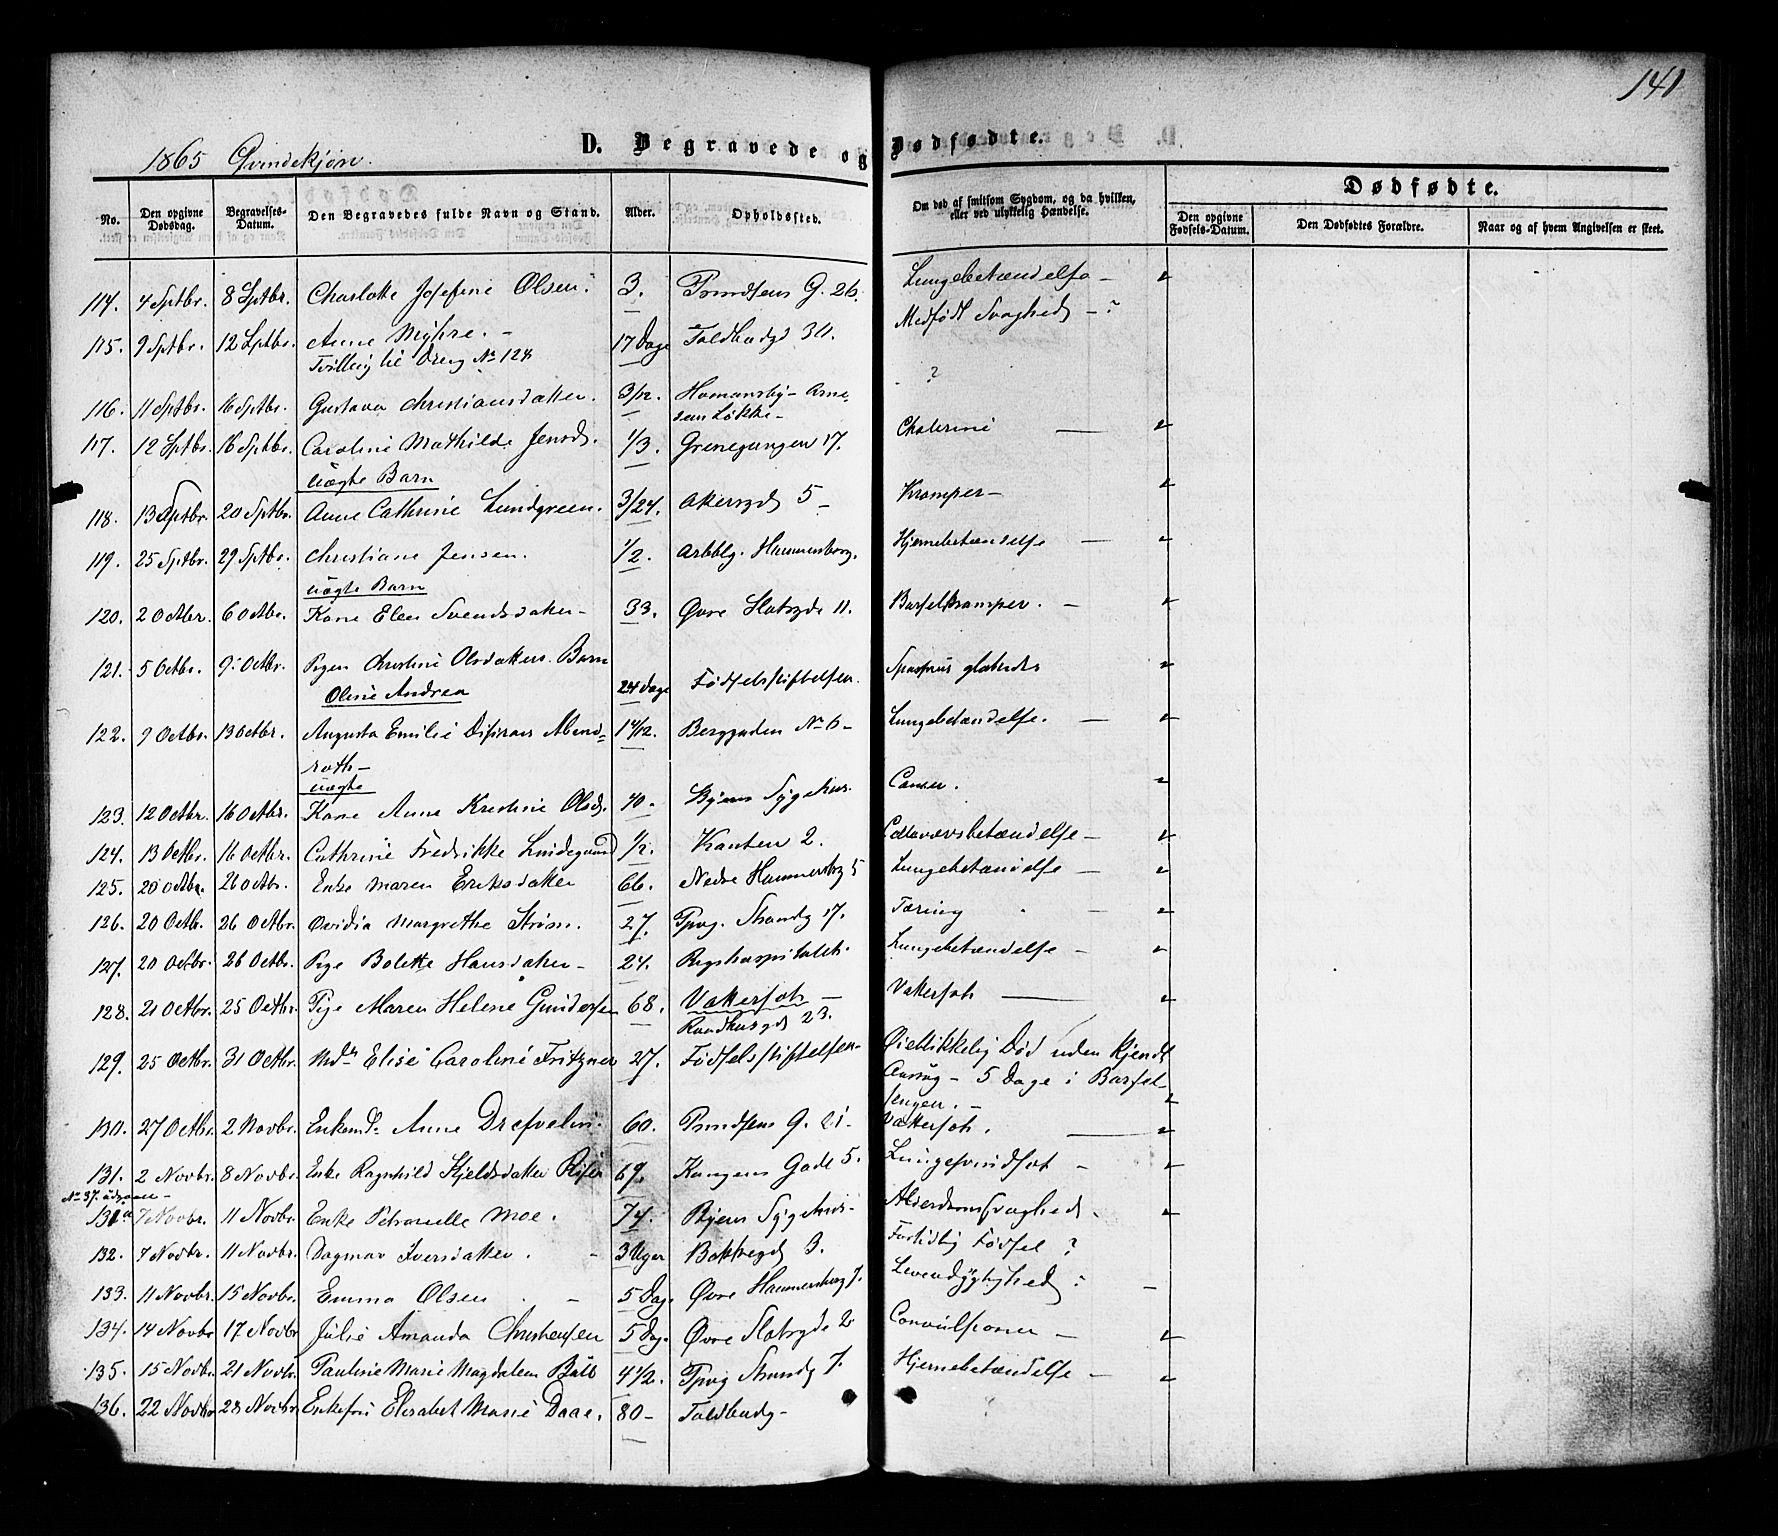 141
1865 Qvindekjøn.
D. Begravede og Dødfødte.
No.
Den opgivne Dødsdag.
Begravelses-Datum.
Den Begravedes fulde Navn og Stand.
Alder.
Opholdssted.
Om død af smitsom Sygdom, og da hvilken, eller ved ulykkelig Hændelse.
Dødfødte.
Den opgivne Fødsels-Datum.
Den Dødfødtes Forældre.
Naar og af hvem Angivelsen er skeet.
114. 4 Sptbr. 8 Sptbr. Charlotte Josefine Olsen. 3. G. 26. Lungebetændelse -
115. 9 Sptbr. 12 Sptbr. Anne Myhre. - 17 Dage Toldbodgd 30. Medfødt Svaghed - ?
Tvilling til Dreng No 128
116. 11 Sptbr. 16 Sptbr. Gustava Christiansdatter. 3/12. Homansby - Arne- ?
sens Løkke -
117. 12 Sptbr. 16 Sptbr. Caroline Mathilde Jensd. 1/3. Grønnegangen 17. Cholerine -
uægte Barn
118. 13 Sptbr. 20 Sptbr. Anne Cathrine Lundgreen. 3/24. Akersgd 5 - Kramper -
119. 25 Sptbr. 29 Sptbr. Christiane Jensen. 1/2. Arbbg. Hammersborg. Hjernebetændelse -
uægte Barn
120. 2 Octbr. 6 Octbr. Kone Elen Svendsdatter - 33. Øvre Slotsgde 11. Barselkramper. -
121. 5 Octbr. 9 Octbr. Pigen Christine Olsdatters Barn
Oline Andrea 24 Dage Fødselsstiftelsen. Spasmus glottidis
122. 9 Octbr. 13 Octbr. Augusta Emilie Abend- 14/12. Berggaden No 6 - Lungebetændelse. -
roth -
uægte
123. 12 Octbr. 16 Octbr. Kone Anne Kristine Olsd. 40. Byens Sygehus. Cancer.
124. 13 Octbr. 16 Octbr. Cathrine Fredrikke Lindegaard 1/2. Kanten 2. Cellevævsbetændelse -
125. 20 Octbr. 26 Octbr. Enke Maren Eriksdatter 66. Nedre Hammersbg 5 Lungebetændelse -
126. 20 Octbr. 26 Octbr. Ovidia Margrethe Strøm. 27. Tpvg. Strandg 17. Tæring -
127. 20 Octbr. 26 Octbr. Pige Bolette Hansdatter - 24. Rigshospitalet. Lungebetændelse -
128. 21 Octbr. 25 Octbr. Pige Maren Helene Gundersen 68. Vattersot - Vattersot -
Raadhusgd 23.
129. 25 Octbr. 31 Octbr. Md. Elise Caroline Fritzner 27. Fødselsstiftelsen - Øieblikkelig Død uden kjendt
Aarsag - 5 Dage i Barsel-
sengen. -
130. 27 Octbr. 2 Novbr. Enkemd. Anne 60. G. 21. Vattersot. -
131. 2 Novbr. 8 Novbr. Enke Ragnhild Kjeldsdatter 69. Kongens Gade 5. Lungesvindsot -
No 37.
131a 7 Novbr. 11 Novbr. Enke Petronelle Moe. 74. Byens Sygehus. Alderdomssvaghed.
132. 7 Novbr. 11 Novbr. Dagmar Iversdatter. - 3 Uger Bakkegd 3. Fortidlig Fødsel ?
133. 11 Novbr. 15 Novbr. Emma Olsen - 5 Dage Øvre Hammersborg 7. Levendygtighed -
134. 14 Novbr 17 Novbr Julie Amanda Christensen 5 Dage Øvre Slotsgde 2 Convulsioner -
135. 15 Novbr. 21 Novbr. Pauline Marie Magdalene 4 1/2. Tpvg Strandg 7. Hjernebetændelse -
136. 22 Novbr 28 Novbr. Enkefru Elisabet Marie Daae. 80 - Toldbodg -